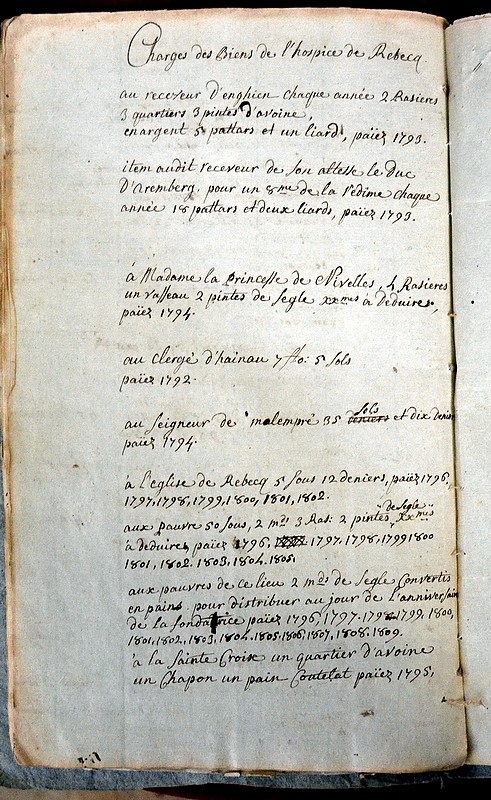 Charges des Biens de l'hospice de Rebecq.
au receveur D'enghien chaque année 2 Rasieres
3 quartiers 3 pintes d'avoine,
en argent 5 pattars et un liard, paiéz 1793.
item audit receveur de son altesse le Duc
D'aremberg, pour un 8me de la redime chaque
année 18 pattars et deux liards, paiéz 1793.
à Madame la princesse de Nivelles, 4 Rasieres
un vasseau 2 pintes de segle xxmes à Deduires,
paiéz 1794.
au clergé d'hainau 7 flo: 5 sols
paiéz 1792.
au seigneur de malempré 35 sols et dix denier
paiéz 1794.
à l'église de Rebecq 5 sous 12 deniers, paiéz 1796,
1797, 1798, 1799, 1800, 1801, 1802.
aux pauvre 50 sous, 2 mds 3 Ras: 2 pintes de segle xxmes
à deduires paiéz 1796, 1797, 1798, 1799 1800
1801, 1802. 1803, 1804. 1805.
aux pauvres de ce lieu 2 mds de segle Convertis
en pains pour distribuer au jour de l'anniversair
de la fondatrice paiéz 1796, 1797. 1798. 1799, 1800,
1801, 1802, 1803, 1804. 1805. 1806, 1807, 1808. 1809.
à la sainte Croix un quartier d'avoine
un Chapon un pain Coutelat paiéz 1795.